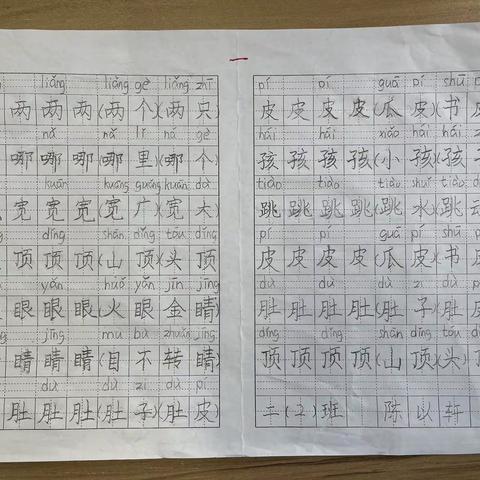 liǎng liǎng gè liǎng zhī
两 两 两 (两 个)(两 只
nǎ nǎ lǐ nǎ gè
哪 哪 哪 哪 里 (哪 个
kuān kuāng guǎng kuān dà
宽 宽 宽 (宽 广)(宽 大
dǐng shān dǐng tóu dǐng
顶 顶 顶 (山 顶)(头 顶
yǎn huǒ yǎn jīn jīng
眼 眼 眼 (火 眼 金 睛)
jīng mù bù zhuǎn jīng
睛 睛 睛 (目 不 转 睛)
dù dù zi dù pí
肚 肚 肚 (肚 子)(肚 皮
pí pí guā pí shū pí
皮 皮 皮 皮 (瓜 皮)(书 皮
hái hái xiǎo hái hái
孩 孩 孩 孩 (小 孩)(孩
tiào tiào tiào shuǐ tiào
跳 跳 跳 跳 (跳 水)(跳
pí pí guā pí shū
皮 皮 皮 皮 (瓜 皮)(书 皮
dù dù dù zi dù
肚 肚 肚 肚 (肚 子)(肚
dǐng dǐng shān dǐng tóu
顶 顶 顶 顶 (山 顶)(头
二 (2) 班 陈 以 轩